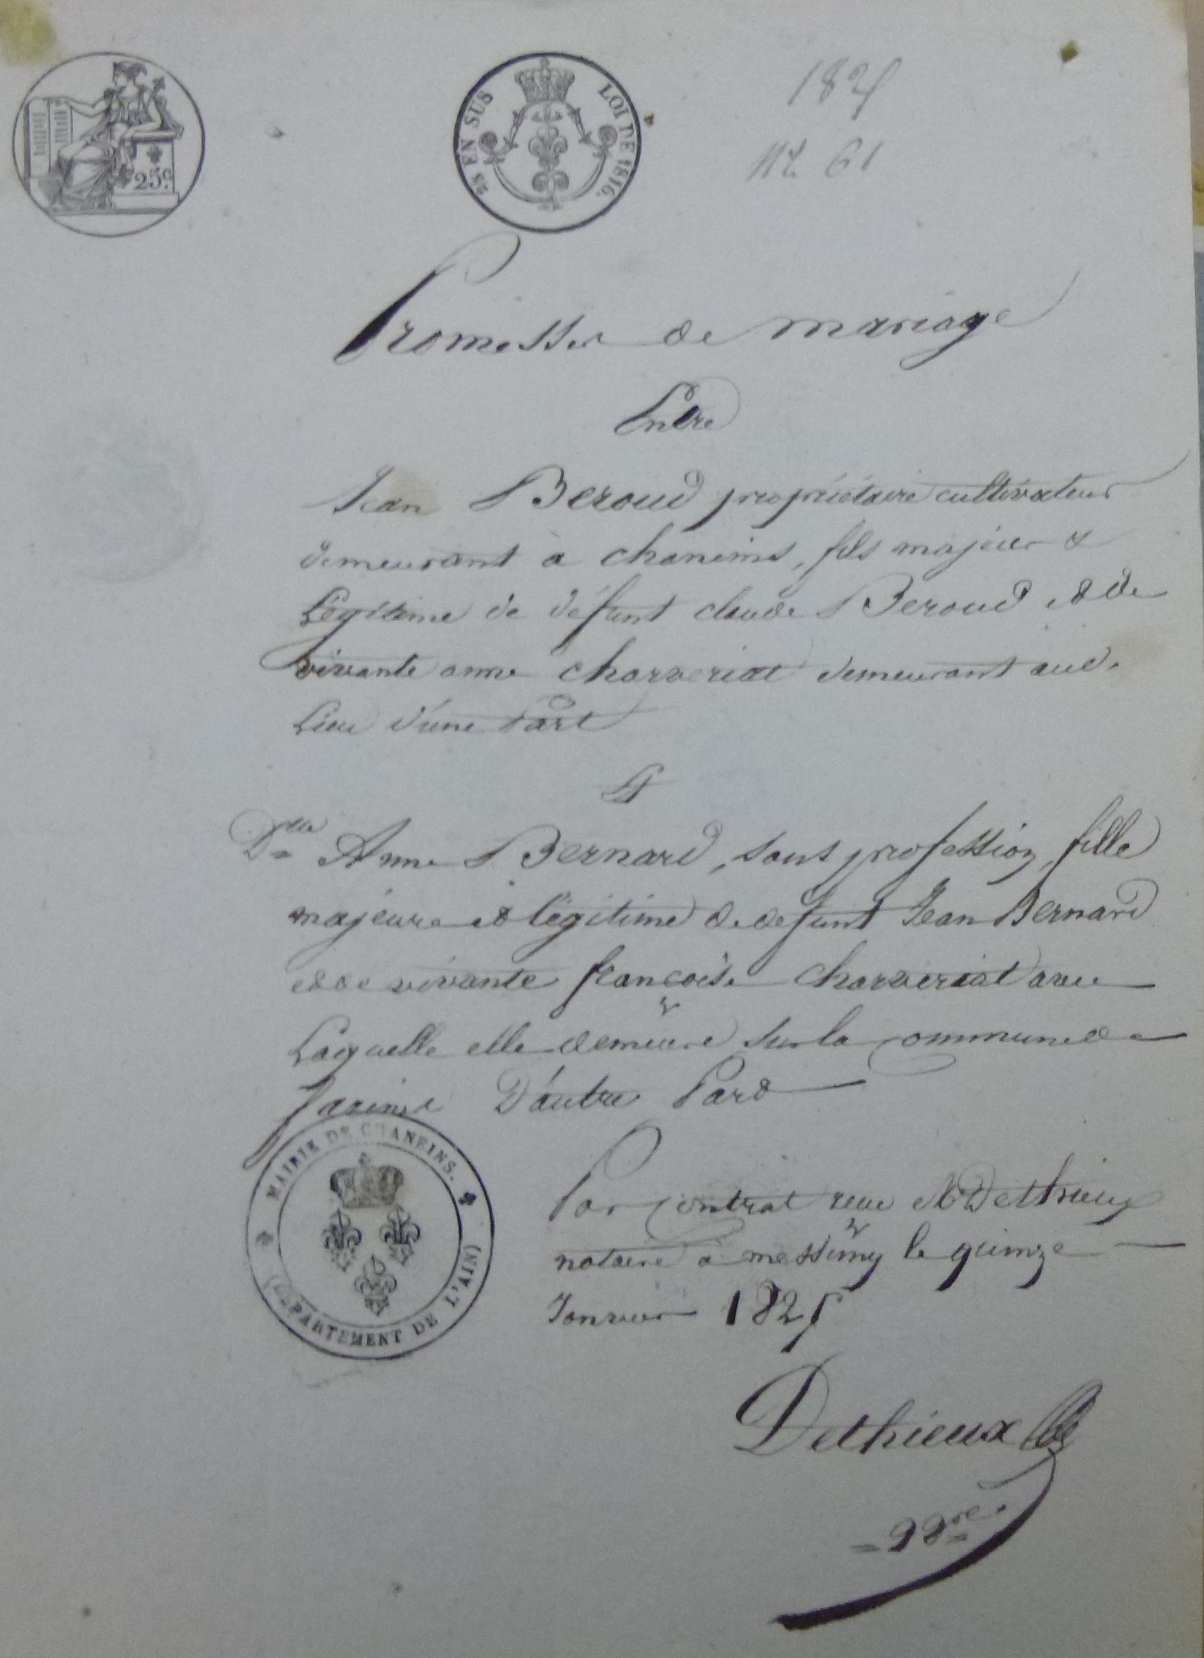 25c
¼ EN SUS LOI DE 1816.
1825
N°. 61
Promesse de mariage
Entre
Jean Beroud propriétaire cultivateur
demeurant à chaneins, fils majeur &
Légitime de défunt claude Beroud et de
vivante anne charveriat demeurant aud.
Lieu d'une Part
Et
Dlle Anne Bernard, sans profession, fille
majeure et légitime de defunt Jean Bernard
et de vivante françoise charveriat avec
Laquelle elle demeure sur la commune de
D'autre Part
MAIRIE DE CHANEINS.
(DEPARTEMENT DE L'AIN)
Par Contrat reçu Me Dethieux
notaire à messimy le quinze
Janvier 1825
Dethieux